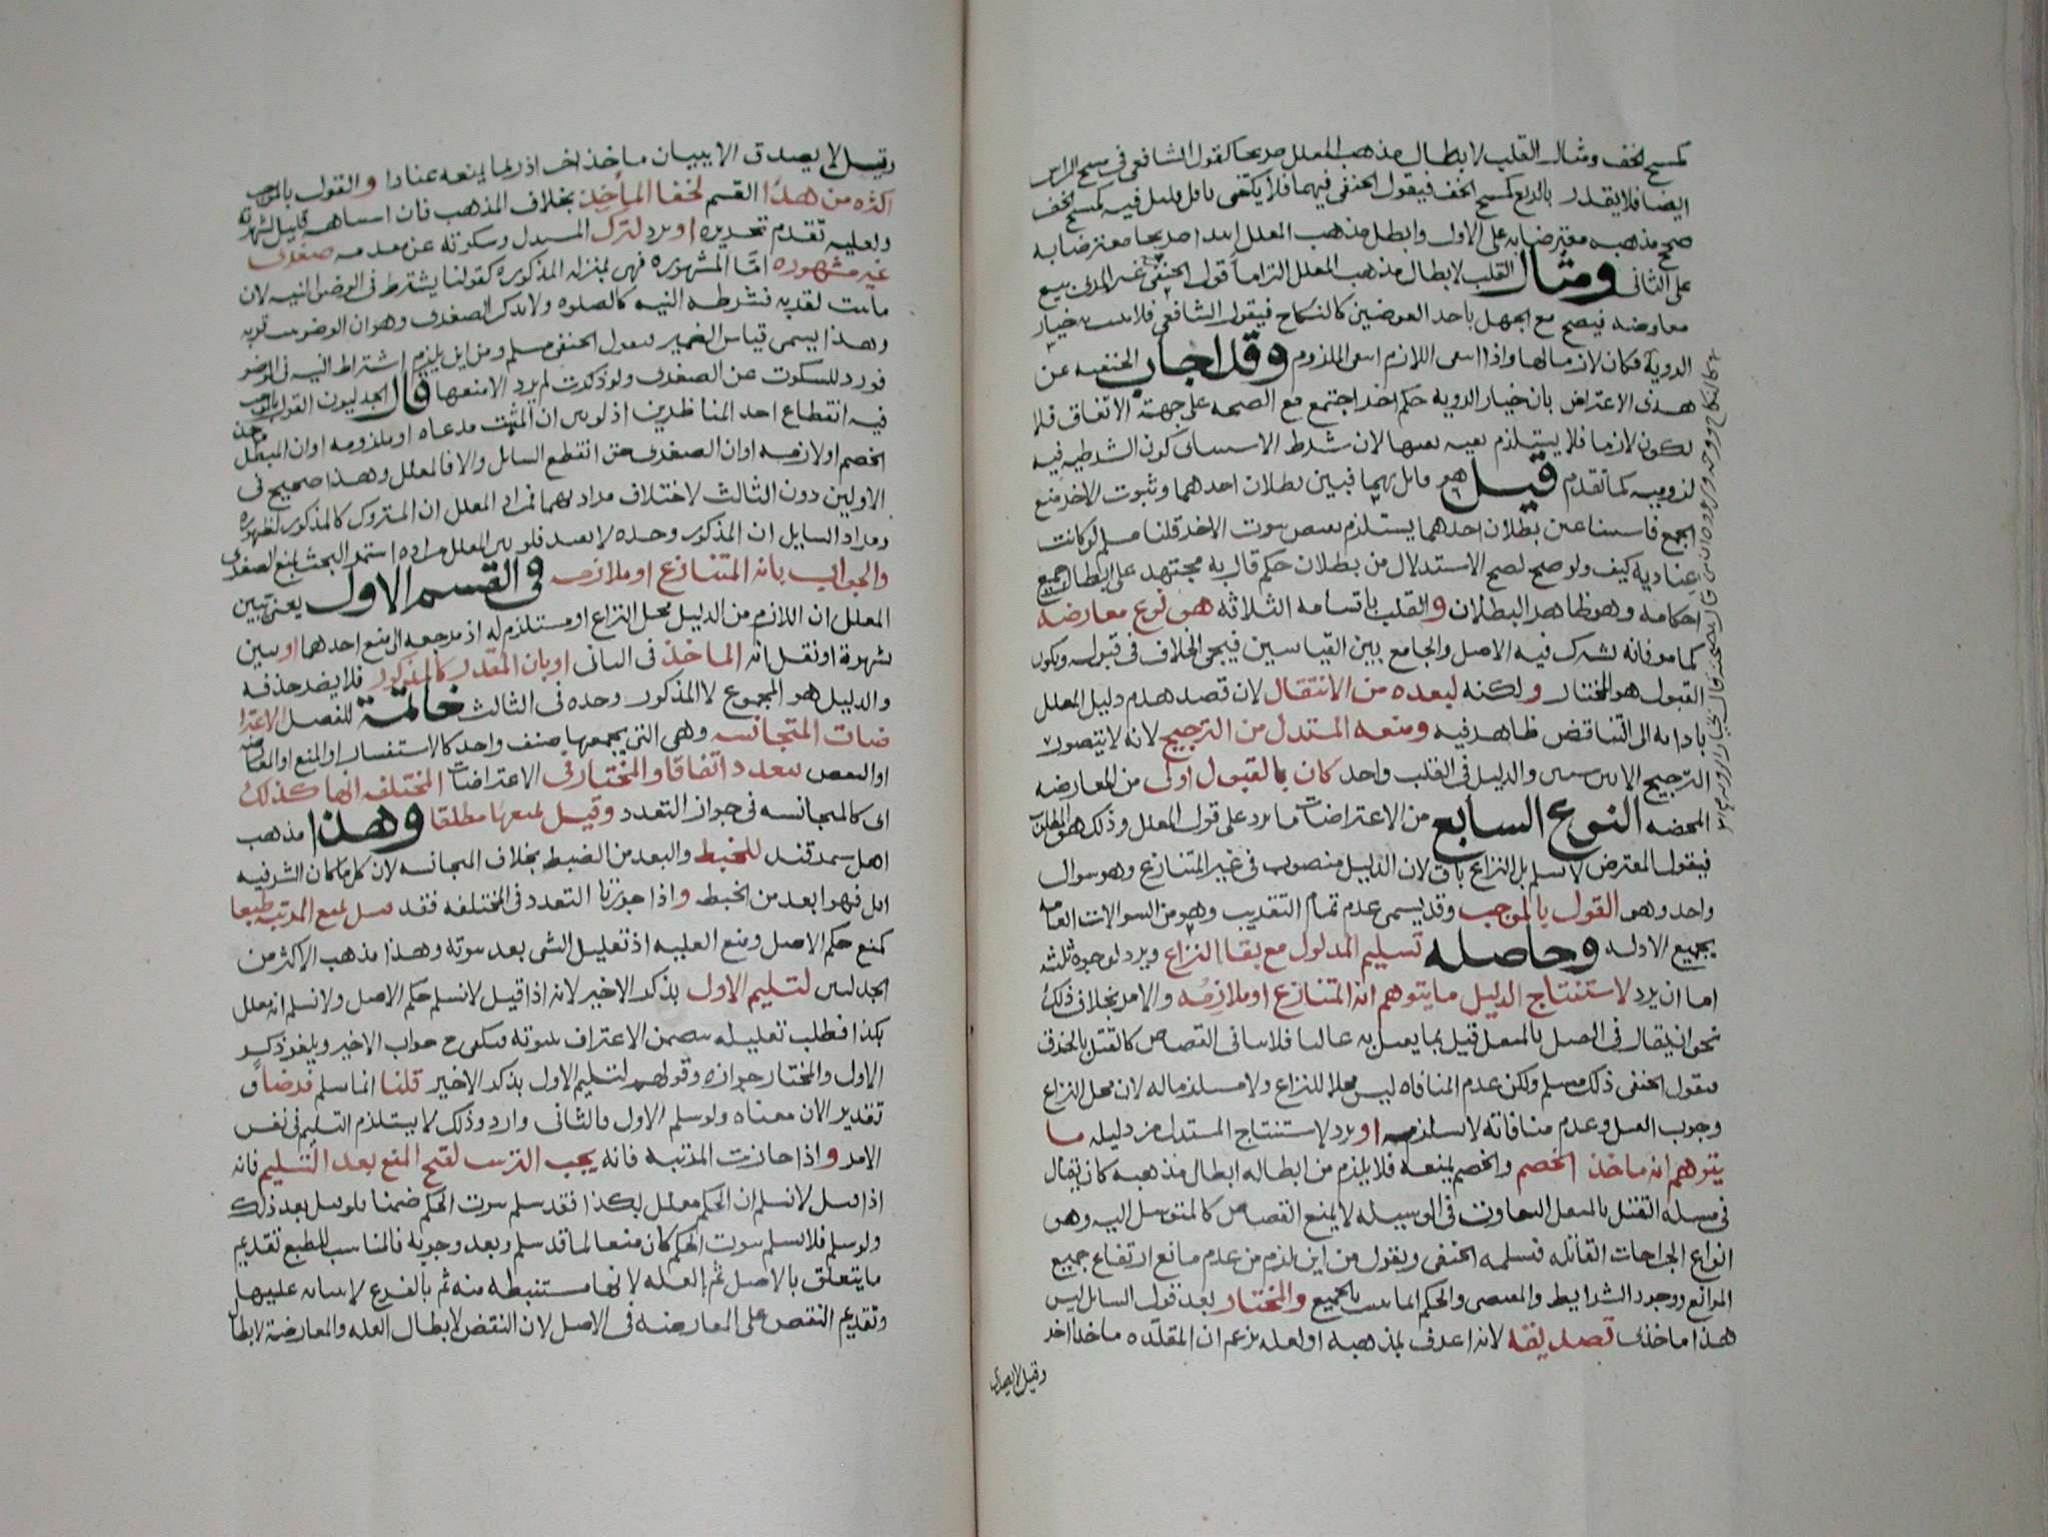 كمسح الخف ومثال القلب لابطال مذهب المعلل صريحا كقول الشافعي في مسح الراس
ايضا فلا يقدر بالربع كمسح الخف فيقول الحنفي فيهما فلا يكتفى باقل قليل فيه كمسح الخف
صحح مذهبه معترضا به على الاول وابطل مذهب المعلل ابتدا صريحا معترضا به
على الثاني ومثال القلب لابطال مذهب المعلل التزاماً قول الحنفي غير المرئ بيع
معاوضه فيصح مع الجهل باحد العوضين كالنكاح فيقول الشافعي فلا يثبت خيار
الروية فكان لازما لها واذا انتفى اللازم انتفى الملزوم وقد اجاب الحنفيه عن
هذا الاعتراض بان خيار الروية حكم اخر اجتمع مع الصحه على جهة الاتفاق فلا
لزوميه كما تقدم قيل هو مانل بهما فبين بطلان احدهما وثبوت الاخر منع
الجمع فاستثنا عين بطلان احدهما يستلزم نقيض ثبوت الاخر قلنا مسلم لو كانت
عنادية كيف ولو صح لصح الاستدلال من بطلان حكم قال به مجتهد على ابطال جميع
احكامه وهو ظاهر البطلان والقلب باقسامه الثلاثه هو نوع معارضه
كما مر فانه يشترك فيه الاصل والجامع بين القياسين فيجي الخلاف في قبوله ويكون
القبول هو المختار ولكنه لبعده من الانتقال لان قصد هدم دليل المعلل
بادائه الى التناقض ظاهر فيه ومنعه المستدل من الترجيح لانه لا يتصور
الترجيح الا بين شيئين والدليل في القلب واحد كان بالقبول اولى من المعارضه
المحضه النوع السابع من الاعتراضات ما يرد على قول المعلل وذلك هو المطلوب
فيقول المعترض لا نسلم بل النزاع باق لان الدليل منصوب في غير المتنازع وهو سوال
واحد وهو القول بالموجب وقد يسمى عدم تمام التقريب وهو من السوالات العامه
بجميع الادله وحاصله تسليم المدلول مع بقا النزاع ويرد لوجوه ثلثه
اما ان يرد لاستنتاج الدليل ما يتوهم انه المتنازع او ملازمه والامر بخلاف ذلك
نحو ان يقال في القتل بالمثقل قتيل بما يقتل به غالبا فلا ينافي القصاص كالقتل بالخنق
فيقول الحنفي ذلك مسلم ولكن عدم المنافاه ليس محلا للنزاع ولا مستلزما له لان محل النزاع
وجوب القتل وعدم منافاته لا يستلزمه او يرد لاستنتاج المستدل من دليله ما
يتوهم انه ماخذ الخصم والخصم يمنعه فلا يلزم من ابطاله ابطال مذهبه كان يقال
في مسله القتل بالمثقل التفاوت في الوسيله لا يمنع القصاص كالمتوسل اليه وهو
انواع الجراحات القاتله فيسلمه الحنفي ويقول من اين يلزم من عدم مانع ارتفاع جميع
الموانع ووجود الشرايط والمقتضي والحكم انما يثبت بالجميع والمختار بعد قول السائل ليس
هذا ماخذي تصديقه لانه اعرف بمذهبه او لعله يزعم ان المقلده ماخذا اخر
وقيل لا يصدق
وقيل لا يصدق الا ببيان ماخذ اخر اذ ربما يمنعه عنادا والقول بالموجب
اكثره من هذا القسم لخفا المآخِذ بخلاف المذهب فان اشتباهه قليل لشهرته
ولعليه تقدم تحريره او يرد لترك المستدل وسكوته عن مقدمه صغرى
غير مشهوره امّا المشهوره فهي بمنزله المذكوره كقولنا يشترط في الوضو النيه لان
ما ثبت لقربه فشرطه النيه كالصلوه ولا يذكر الصغرى وهو ان الوضو ثبت قربه
وهذا يسمى قياس الضمير فيقول الحنفي مسلم ومن اين يلزم اشتراط النيه في الوضو
فورد للسكوت عن الصغرى ولو ذكرت لم يرد الا منعها قال الجدليون القول بالموجب
فيه انقطاع احد المناظرين اذ لو بين ان المثبت مدعاه او ملزومه او ان المبطل ماخذ
الخصم او لازمه او ان الصغرى حق انقطع السايل والا فالمعلل وهذا صحيح في
الاولين دون الثالث لاختلاف مراديهما فمراد المعلل ان المتروك كالمذكور لظهوره
ومراد السايل ان المذكور وحده لا يفيد فلو بين المعلل مراده استمر البحث بمنع الصغرى
والجواب بانه المتنازع او ملازمه في القسم الاول يعني تبيين
المعلل ان اللازم من الدليل محل النزاع او مستلزم له اذ مرجعه الى منع احدهما او يبين
بشهرة او نقل انه الماخذ في الثاني او بان المقدر كالمذكور فلا يضر حذفه
والدليل هو المجموع لا المذكور وحده في الثالث خاتمة للفصل الاعترا
ضات المتجانسه وهي التي يجمعها صنف واحد كالاستفسار او المنع او المعارضه
او النقض تتعدد اتفاقا والمختار في الاعتراضات المختلفه انها كذلك
اي كالمتجانسه في جواز التعدد وقيل بمنعها مطلقا وهذا مذهب
اهل سمرقند للخبط والبعد من الضبط بخلاف المتجانسه لان كل ما كان الشر فيه
اقل فهو ابعد من الخبط واذا جوزنا التعدد في المختلفه فقد قيل بمنع المرتبه طبعا
كمنع حكم الاصل ومنع العليه اذ تعليل الشي بعد ثبوته وهذا مذهب الاكثر من
الجدليين لتسليم الاول بذكر الاخير لانه اذا قيل لا نسلم حكم الاصل ولا نسلم انه معلل
بكذا فطلب تعليله يتضمن الاعتراف بثبوته فيكون جواب الاخير ويلغو ذكر
الاول والمختار جوازه وقولهم لتسليم الاول بذكر الاخير قلنا انما سلم فرضا و
تقدير الان معناه ولو سلم الاول فالثاني وارد وذلك لا يستلزم التسليم في نفس
الامر واذا جازت المرتبه فانه يجب الترتيب لقبح المنع بعد التسليم فانه
اذا قيل لا نسلم ان الحكم معلل بكذا فقد سلم ثبوت الحكم ضمنا فلو قيل بعد ذلك
ولو سلم فلا نسلم ثبوت الحكم كان منعا لما قد سلم وبعد وجوبه فالمناسب للطبع تقديم
ما يتعلق بالاصل ثم العله لانها مستنبطه منه ثم بالفرع لابتنائه عليها
وتقديم النقض على المعارضه في الاصل لان النقض لابطال العله والمعارضة لابطال